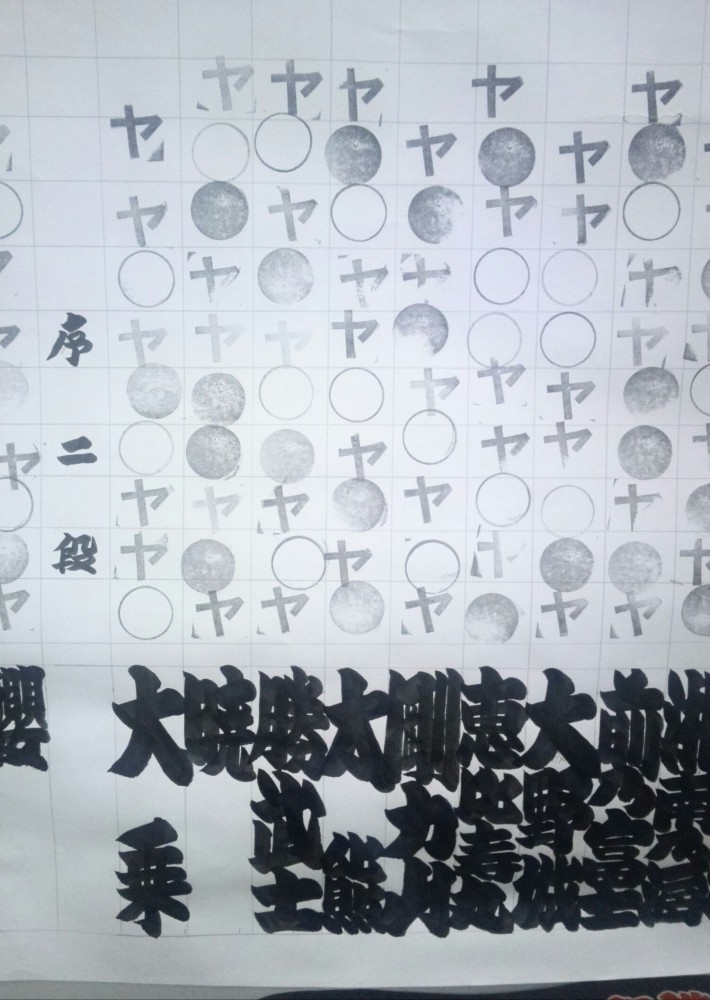 ヤ●○ヤヤ●●ヤ●ヤ前乃富
ヤヤ○○ヤヤ○●ヤ大野城
ヤ●ヤ○○ヤヤ○ヤ●恵比寿丸
ヤ●ヤ●ヤ○ヤ○ヤ剛力丸
ヤ●○ヤヤ○ヤ●ヤ●大熊
ヤ○ヤ●ヤ○●ヤ○ヤ勝武士
ヤ○●ヤヤ●●ヤ●ヤ曉
ヤヤ○ヤ●○ヤヤ○大乗
序二段
櫻